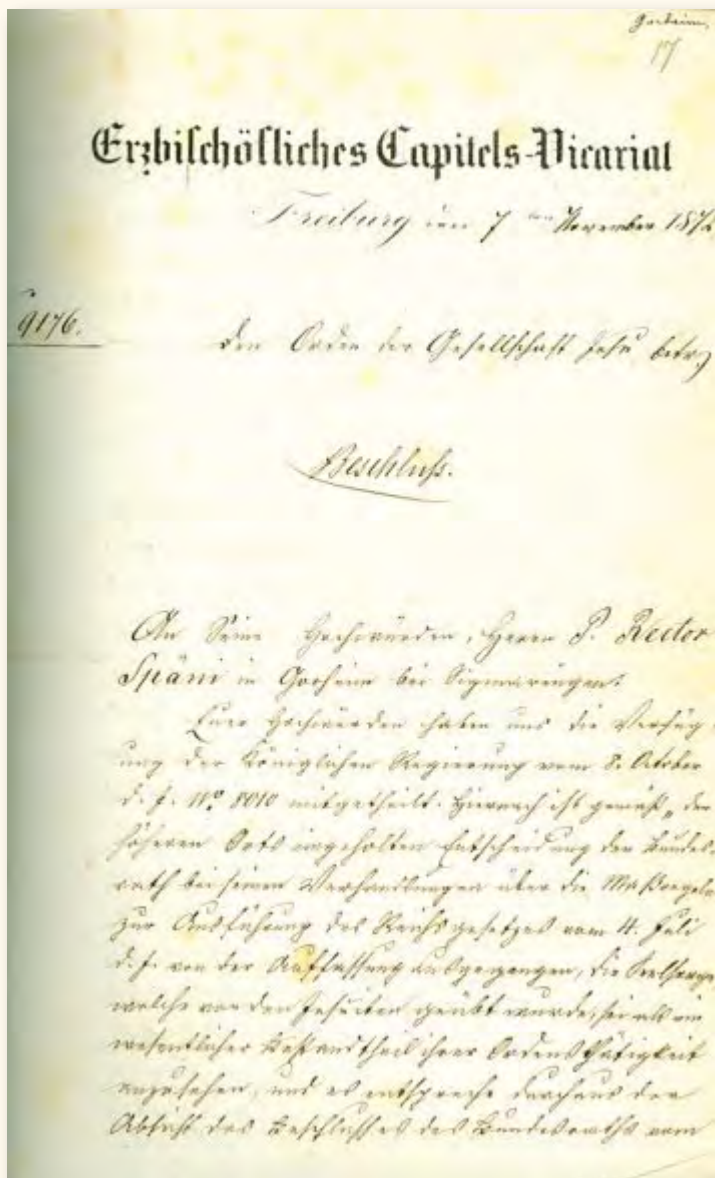 Gorheim,
17
Erzbischöfliches Capitels-Vicariat
Freiburg den 7ten November 1872
9176.
Den Orden der Gesellschaft Jesu betr.
Beschluß.
An Seine Hochwürden, Herrn P. Rector
Späni in Gorheim bei Sigmaringen.
Euer Hochwürden haben uns die Verfüg-
ung der Königlichen Regierung vom 8. October
d. J. No. 8010 mitgetheilt. Hiernach ist gemäß „der
höheren Orts eingeholten Entscheidung der Bundes-
rath bei seinen Verhandlungen über die Maßregeln
zur Ausführung des Reichsgesetzes vom 4. Juli
d. J. von der Auffassung ausgegangen, die Seelsorge
welche von den Jesuiten geübt wurde, sei als ein
wesentlicher Bestandtheil ihrer Ordensthätigkeit
anzusehen, und es entspreche durchaus der
Absicht des Beschlusses des Bundesraths vom